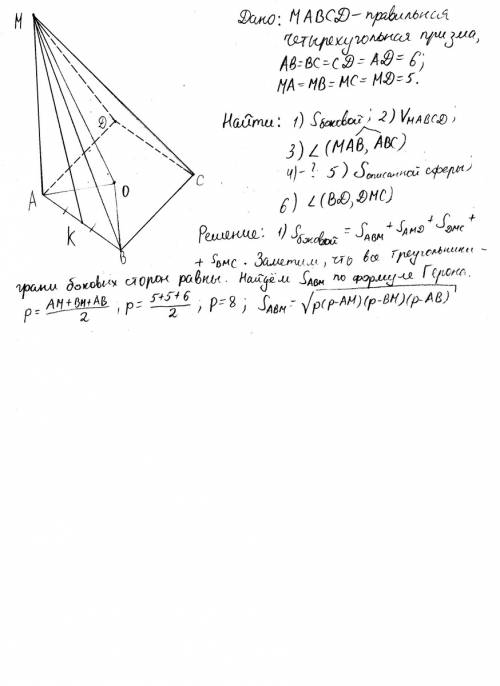 Дано: MABCD – правильная
четырехугольная призма,
AB=BC=CD=AD=6;
MA=MB=MC=MD=5.
Найти: 1) Sбоковой; 2) VMABCD;
3) ∠(MAB, ABC)
4) - ? 5) Sописанной сферы;
6) ∠(BD, DMC)
Решение: 1) Sбоковой = SABM + SAMD + SDMC +
+ SBMC. Заметим, что все треугольники -
грани боковых сторон равны. Найдём SABM по формуле Герона.
P = AM+BM+AB / 2, p = 5+5+6 / 2; P=8; SABM = √p(p-AM)(p-BM)(p-AB)
M
D
A
O
C
K
B